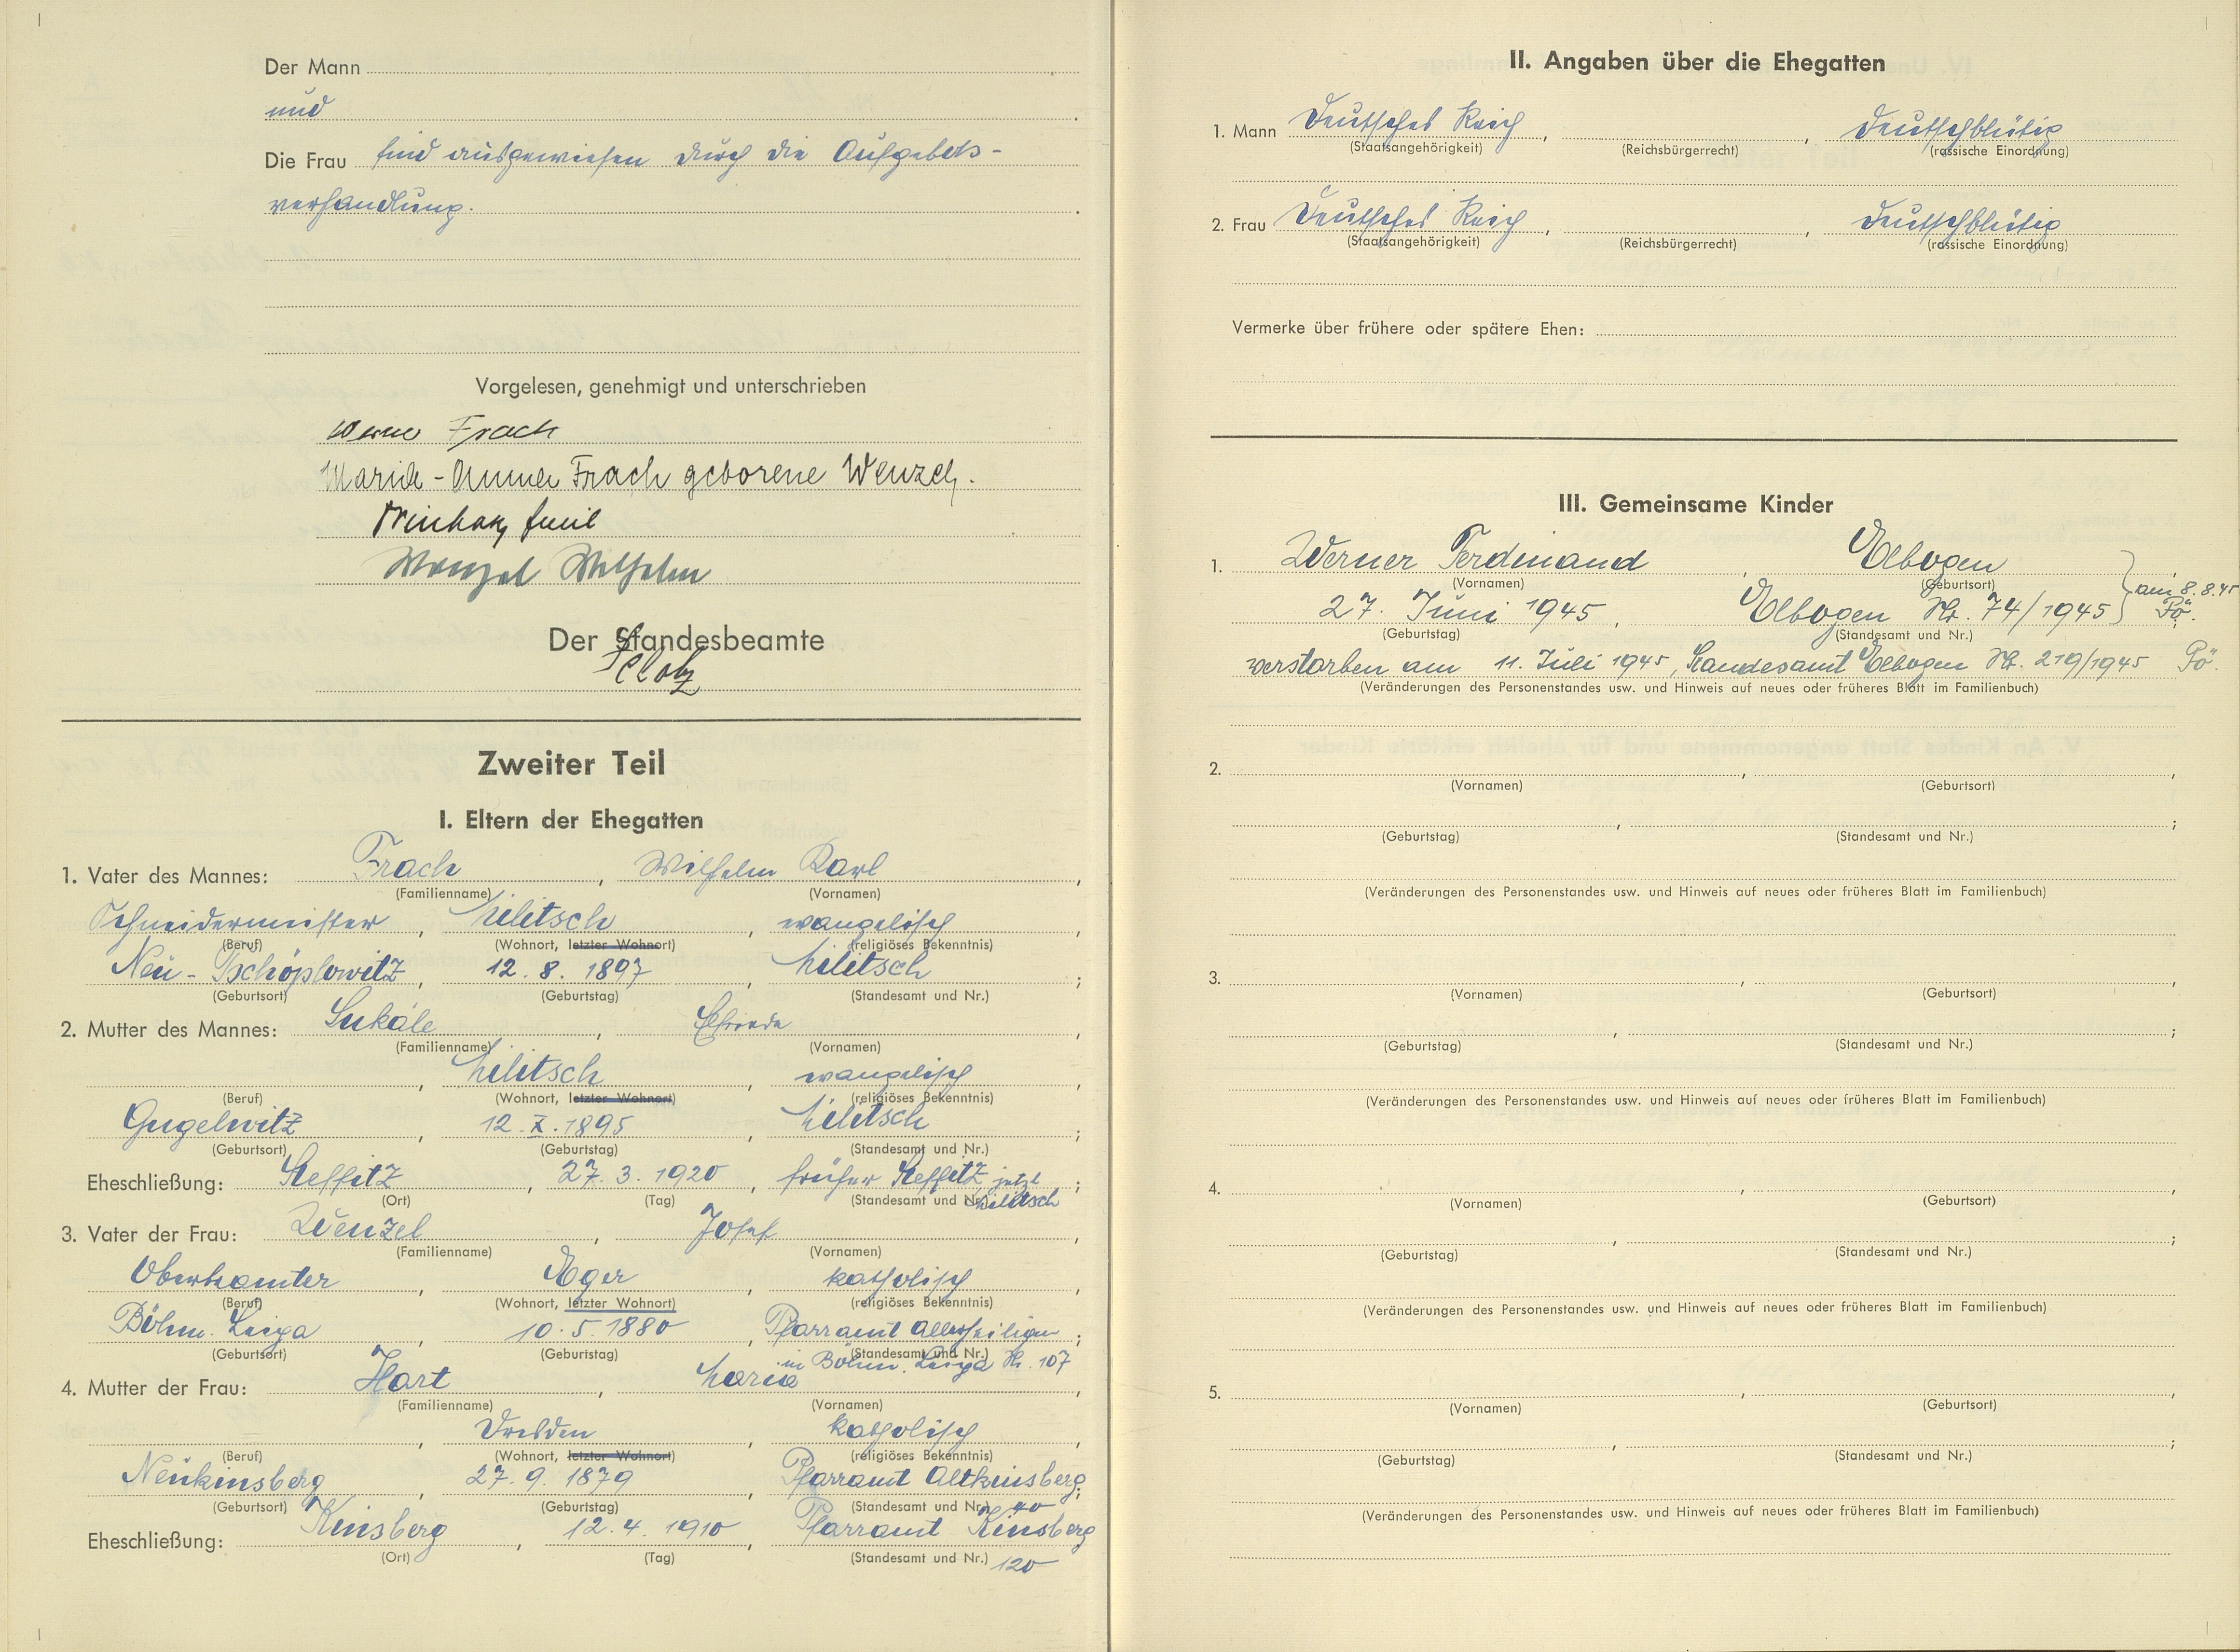 Der Mann
und
Die Frau sind ausgewiesen durch die Aufgebots-
verhandlung.
Vorgelesen, genehmigt und unterschrieben
Werner Frach
Marie-Anna Frach geborene Wenzel.
Emil
Wenzel Wilhelm
Der Standesbeamte
Zweiter Teil
I. Eltern der Ehegatten
1. Vater des Mannes: Frach, Wilhelm Karl,
(Familienname) (Vornamen)
Schneidermeister, Militsch, evangelisch,
(Beruf) (Wohnort, letzter Wohnort) (religiöses Bekenntnis)
Neu-Tschöplowitz, 12. 8. 1897, Militsch;
(Geburtsort) (Geburtstag) (Standesamt und Nr.)
2. Mutter des Mannes: Sukale, Elfriede,
(Familienname) (Vornamen)
, Militsch, evangelisch,
(Beruf) (Wohnort, letzter Wohnort) (religiöses Bekenntnis)
Gugelwitz, 12. X. 1895, Militsch;
(Geburtsort) (Geburtstag) (Standesamt und Nr.)
Eheschließung: Steffitz, 27. 3. 1920, früher Steffitz, jetzt;
(Ort) (Tag) (Standesamt und Nr.) Militsch
3. Vater der Frau: Wenzel, Josef,
(Familienname) (Vornamen)
Oberbeamter, Eger, katholisch,
(Beruf) (Wohnort, letzter Wohnort) (religiöses Bekenntnis)
Böhm. Leipa, 10. 5. 1880, Pfarramt Allerheiligen;
(Geburtsort) (Geburtstag) (Standesamt und Nr.)
in Böhm. Leipa Nr. 107
4. Mutter der Frau: Hart, Maria,
(Familienname) (Vornamen)
, Dresden, katholisch,
(Beruf) (Wohnort, letzter Wohnort) (religiöses Bekenntnis)
Neukinsberg, 27. 9. 1879, Pfarramt Altkinsberg;
(Geburtsort) (Geburtstag) (Standesamt und Nr.) 40
Eheschließung: Kinsberg, 12. 4. 1910, Pfarramt Kinsberg
(Ort) (Tag) (Standesamt und Nr.) 120
II. Angaben über die Ehegatten
1. Mann Deutsches Reich, , deutschblütig
(Staatsangehörigkeit) (Reichsbürgerrecht) (rassische Einordnung)
2. Frau Deutsches Reich, , deutschblütig
(Staatsangehörigkeit) (Reichsbürgerrecht) (rassische Einordnung)
Vermerke über frühere oder spätere Ehen:
III. Gemeinsame Kinder
1. Werner Ferdinand, Elbogen
(Vornamen) (Geburtsort)
am 8. 8. 45
27. Juni 1945, Elbogen Nr. 74/1945 Pö.
(Geburtstag) (Standesamt und Nr.)
verstorben am 11. Juli 1945, Standesamt Elbogen Nr. 219/1945 Pö.
(Veränderungen des Personenstandes usw. und Hinweis auf neues oder früheres Blatt im Familienbuch)
2. , ,
(Vornamen) (Geburtsort)
, ;
(Geburtstag) (Standesamt und Nr.)
(Veränderungen des Personenstandes usw. und Hinweis auf neues oder früheres Blatt im Familienbuch)
3. , ,
(Vornamen) (Geburtsort)
, ;
(Geburtstag) (Standesamt und Nr.)
(Veränderungen des Personenstandes usw. und Hinweis auf neues oder früheres Blatt im Familienbuch)
4. , ,
(Vornamen) (Geburtsort)
, ;
(Geburtstag) (Standesamt und Nr.)
(Veränderungen des Personenstandes usw. und Hinweis auf neues oder früheres Blatt im Familienbuch)
5. , ,
(Vornamen) (Geburtsort)
, ;
(Geburtstag) (Standesamt und Nr.)
(Veränderungen des Personenstandes usw. und Hinweis auf neues oder früheres Blatt im Familienbuch)